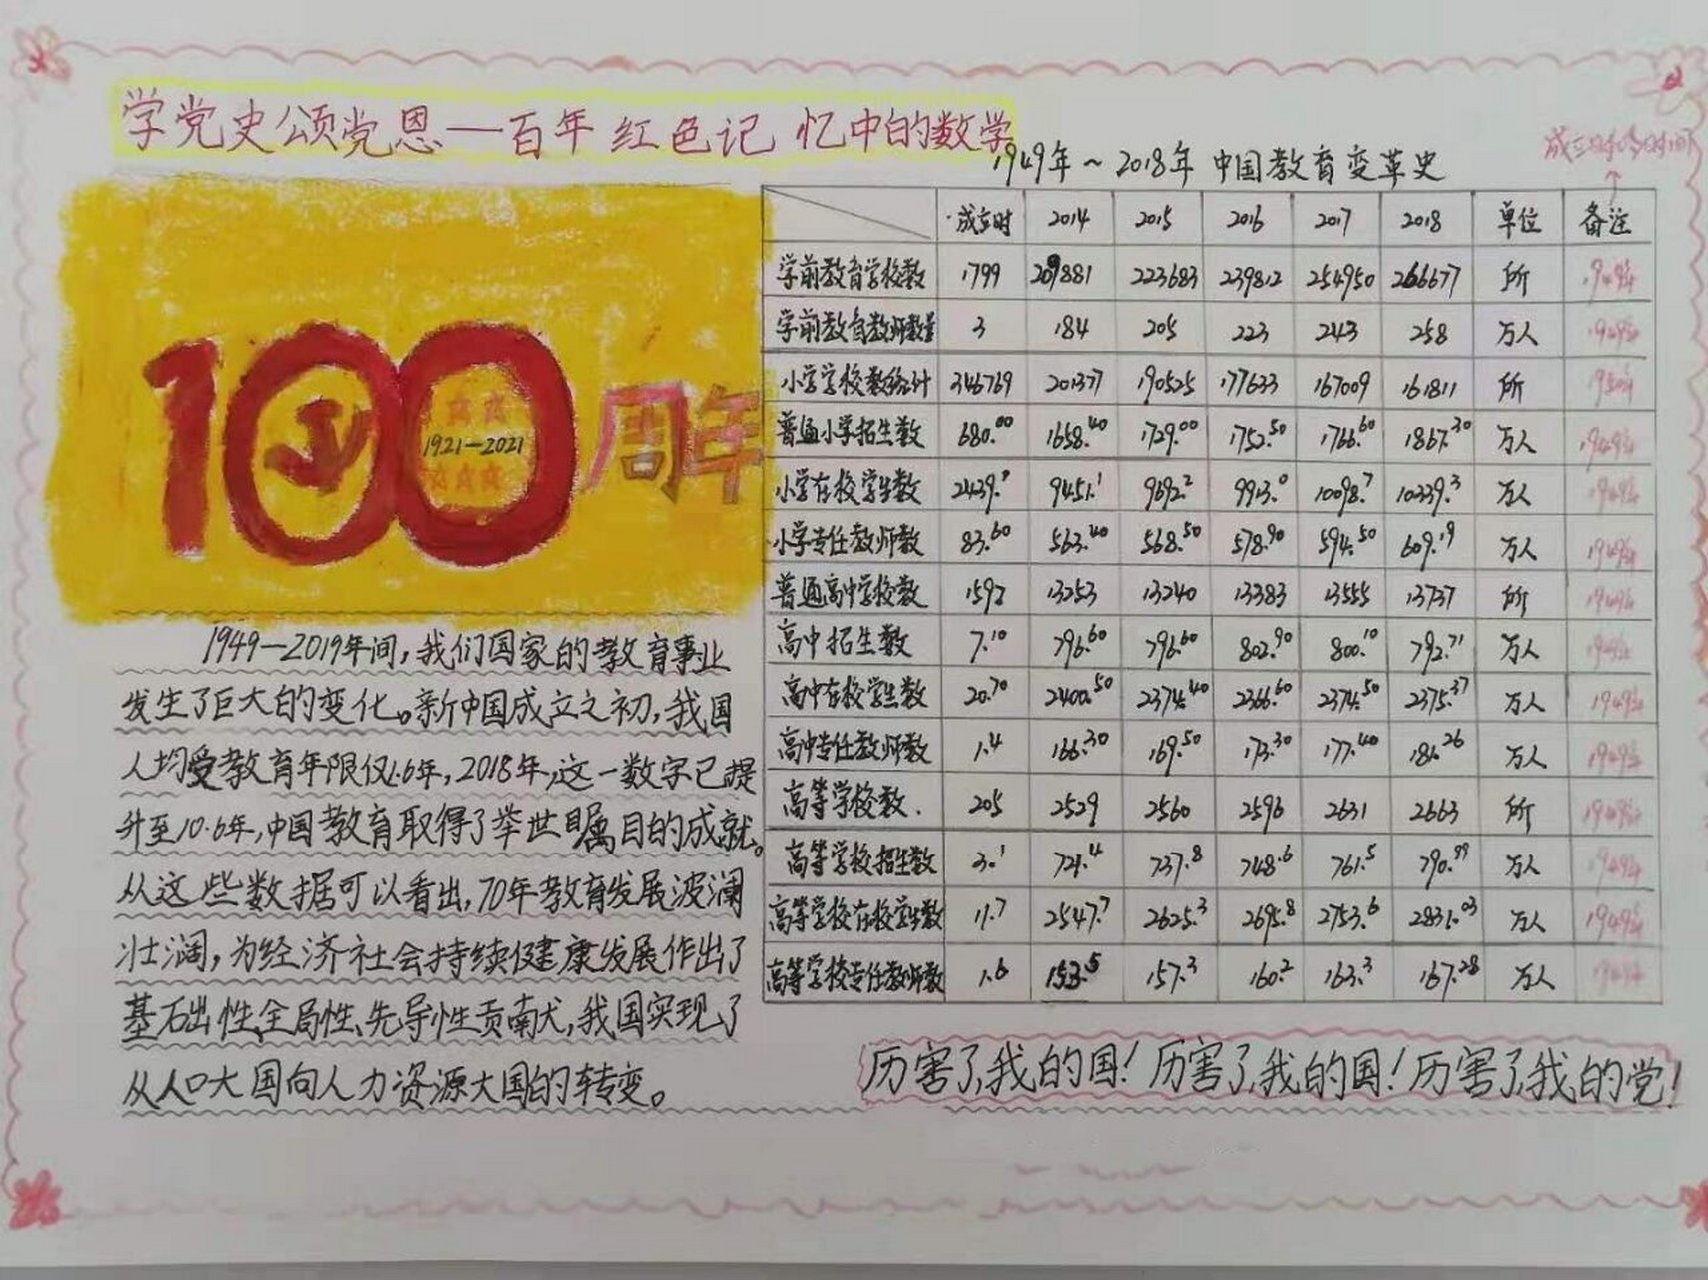 学党史颂党恩—百年红色记忆中的数学
1949年~2018年中国教育变革史
成立时 2014 2015 2016 2017 2018 单位 备注
学前教育学校数 1799 209881 223683 239812 254950 266677 所 1949年
学前教育教师数量 3 184 205 223 243 258 万人 1949年
小学学校数统计 346769 201377 190525 177633 167009 161811 所 1949年
普通小学招生数 680.00 1658.40 1729.00 1752.50 1766.60 1867.30 万人 1949年
小学在校学生数 2439. 9451.1 9692.2 9913.0 10098.7 10339.3 万人 1949年
小学专任教师数 83.60 563.40 568.50 578.90 594.50 609.19 万人 1949年
普通高中学校数 1597 13253 13240 13383 13555 13737 所 1949年
高中招生数 7.10 796.60 796.60 802.90 800.10 792.71 万人 1949年
高中在校学生数 20.70 2400.50 2374.40 2366.60 2374.50 2375.37 万人 1949年
高中专任教师数 1.4 166.30 169.50 173.30 177.40 181.26 万人 1949年
高等学校数. 205 2529 2560 2596 2631 2663 所 1949年
高等学校招生数 3.1 721.4 737.8 748.6 761.5 790.99 万人 1949年
高等学校在校学生数 11.7 2547.7 2625.3 2695.8 2753.6 2831.03 万人 1949年
高等学校专任教师数 1.6 153.5 157.3 160.2 163.3 167.28 万人 1949年
100周年
1921—2021
1949—2019年间,我们国家的教育事业
发生了巨大的变化。新中国成立之初,我国
人均受教育年限仅1.6年,2018年,这一数字已提
升至10.6年,中国教育取得了举世瞩目的成就。
从这些数据可以看出,70年教育发展波澜
壮阔,为经济社会持续健康发展作出了
基石出性、全局性、先导性贡献,我国实现了
从人口大国向人力资源大国的转变。
厉害了,我的国!厉害了,我的国!厉害了,我的党!